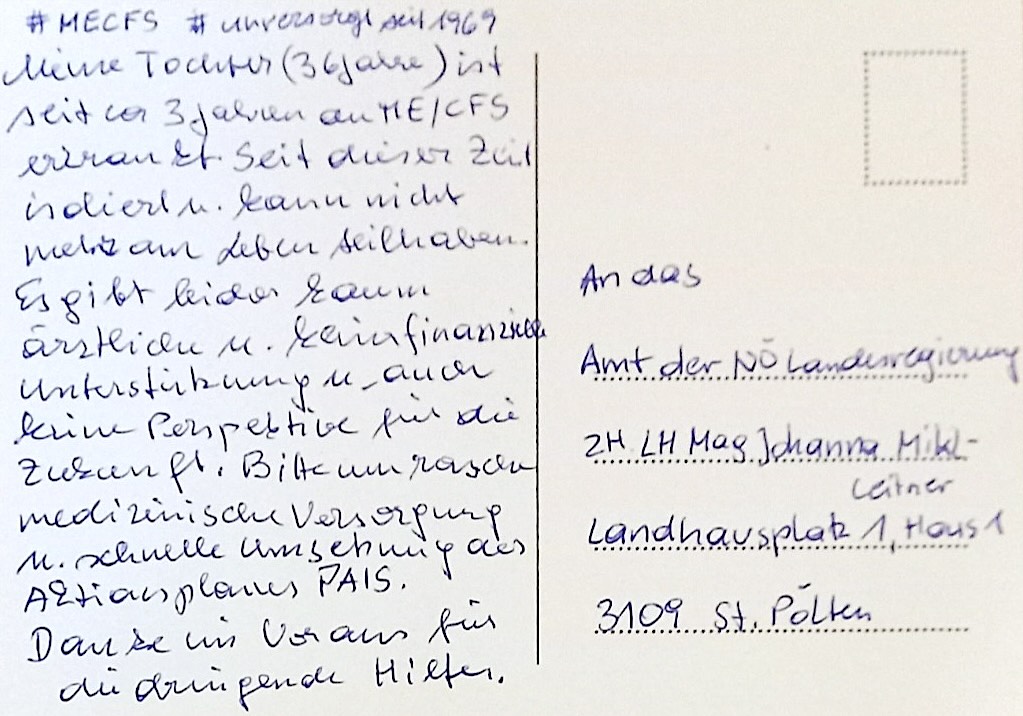 #MECFS #unversorgt seit 1969
Meine Tochter (36 Jahre) ist
seit ca 3 Jahren an ME/CFS
erkrankt. Seit dieser Zeit
isoliert u. kann nicht
mehr am Leben teilhaben.
Es gibt leider kaum
ärztliche u. keine finanzielle
Unterstützung u. auch
keine Perspektive für die
Zukunft. Bitte um rasche
medizinische Versorgung
u. schnelle Umsetzung des
Aktionsplanes PAIS.
Danke im Voraus für
die dringende Hilfe.
An das
Amt der NÖ Landesregierung
ZH. LH Mag Johanna Mikl-
Leitner
Landhausplatz 1, Haus 1
3109 St. Pölten